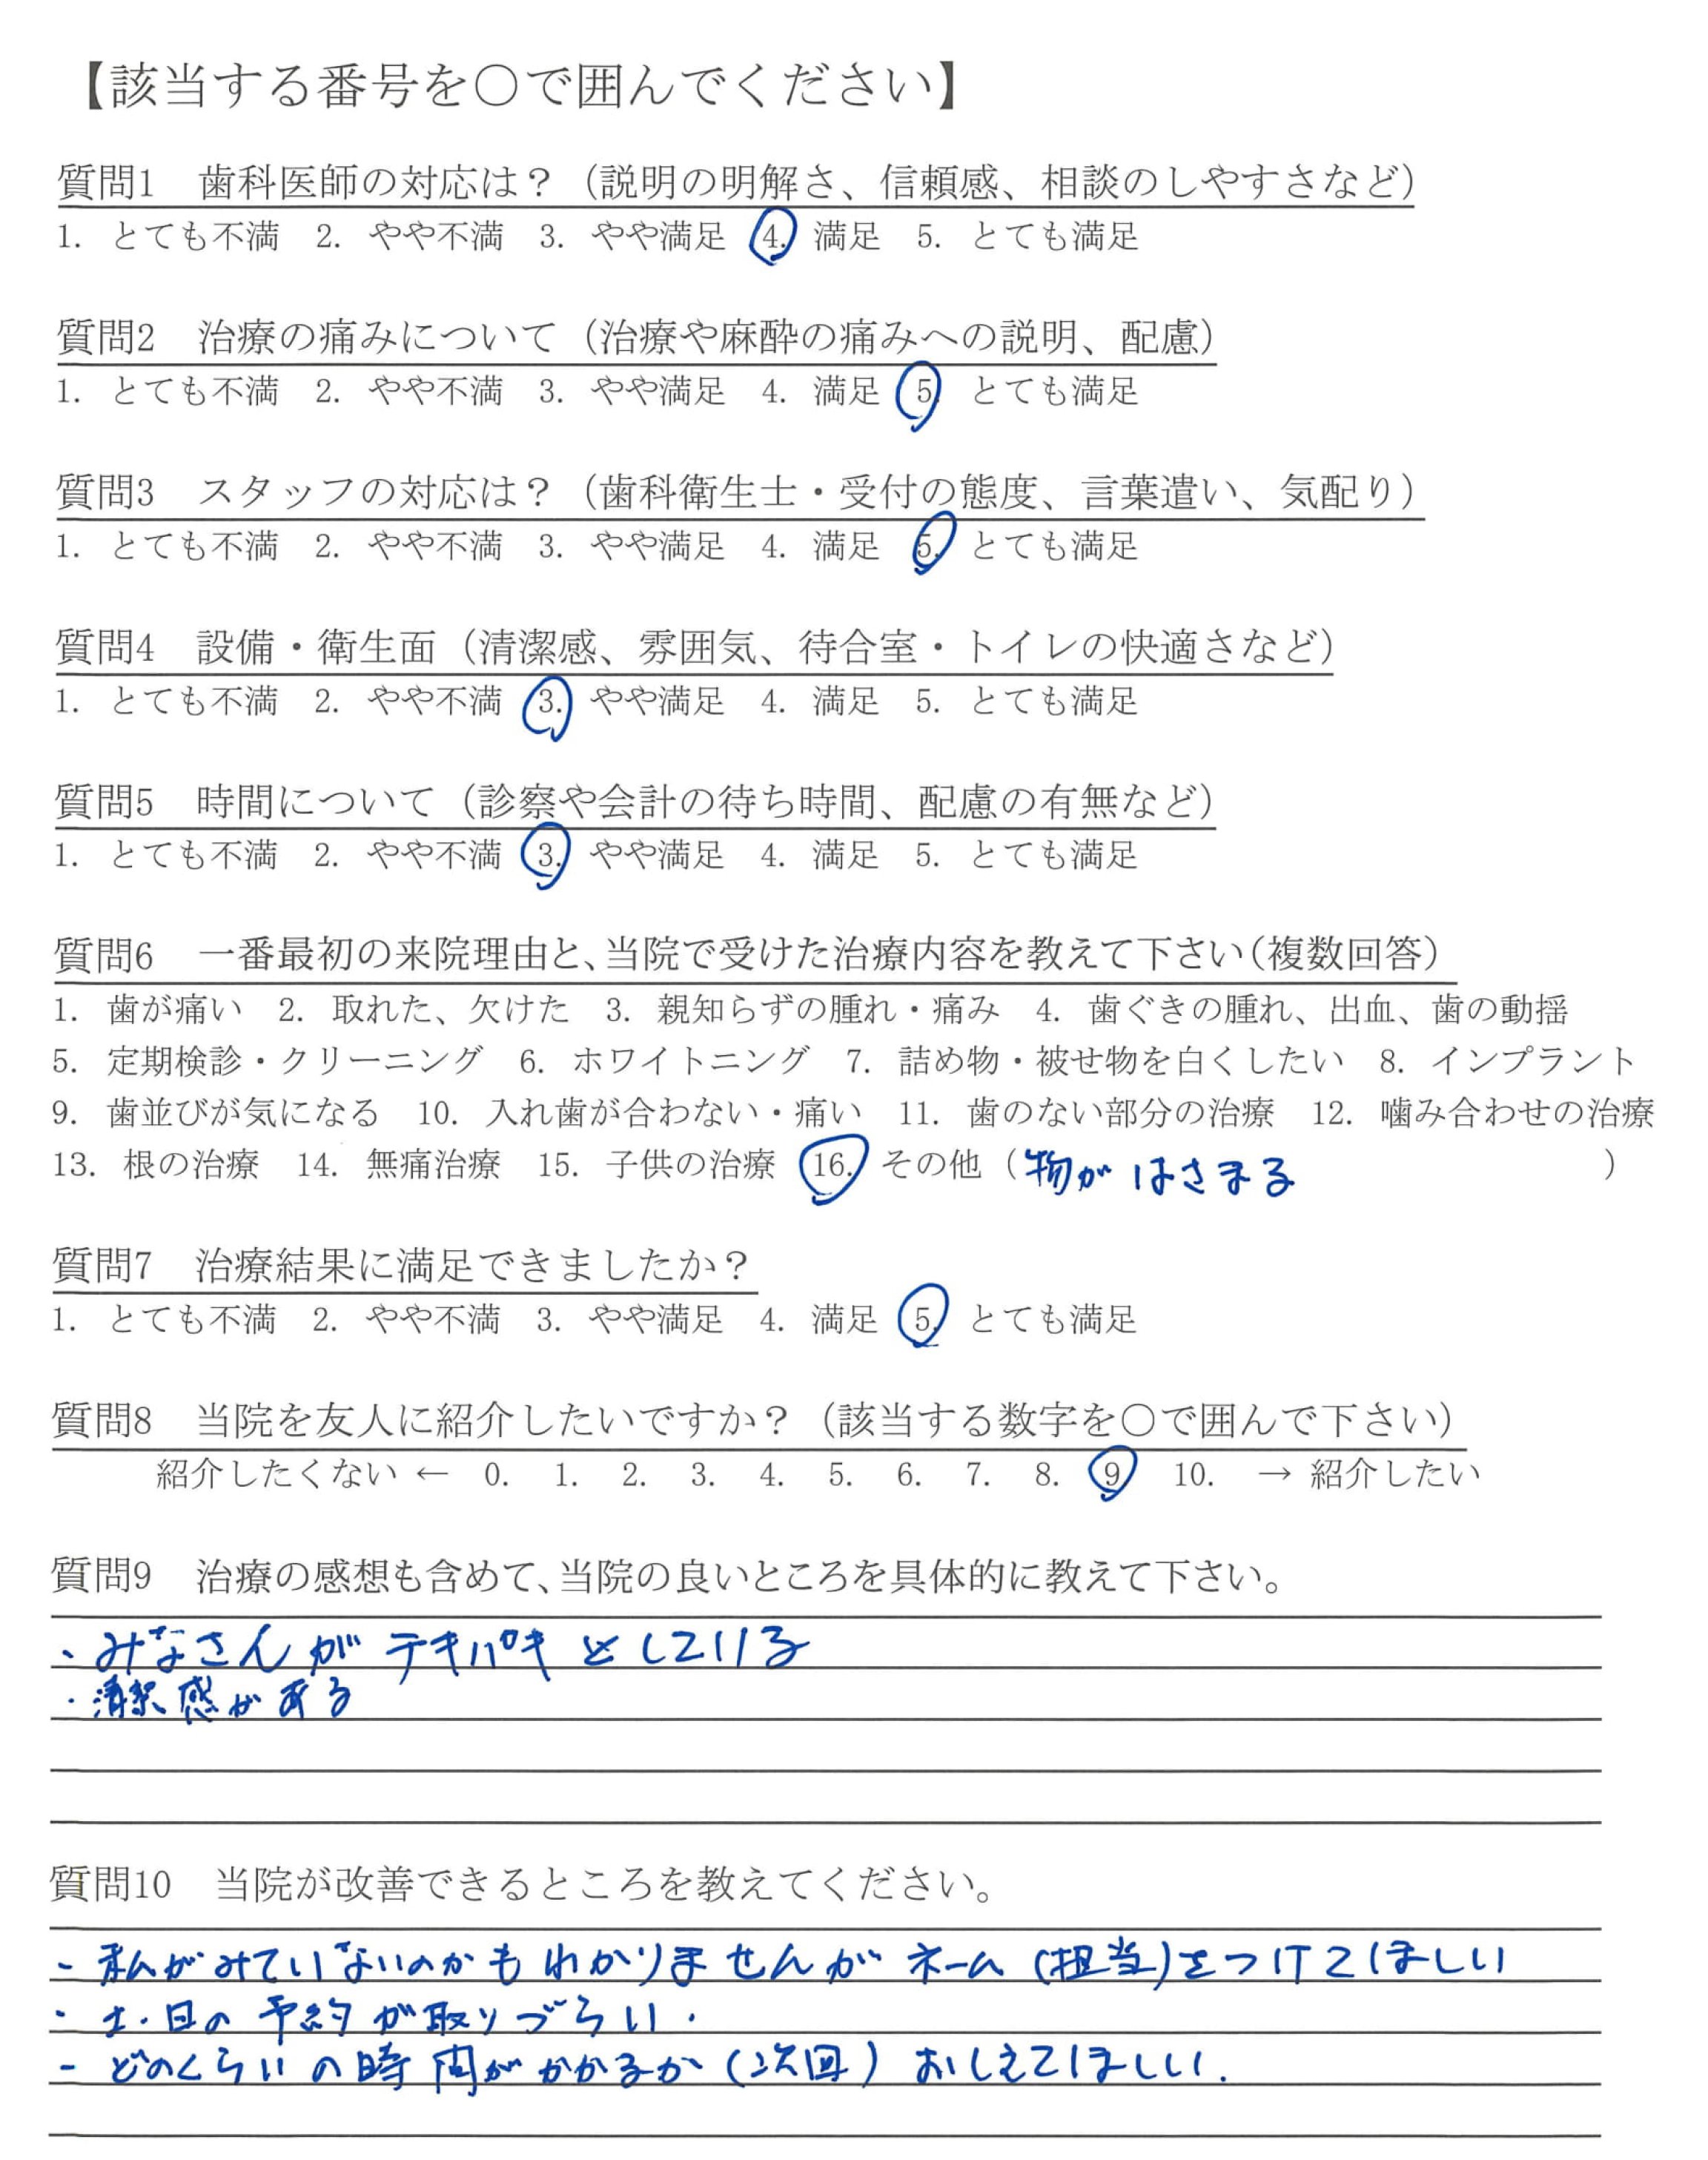 【該当する番号を○で囲んでください】
質問1 歯科医師の対応は？（説明の明解さ、信頼感、相談のしやすさなど）
1. とても不満 2. やや不満 3. やや満足 4. 満足 5. とても満足
質問2 治療の痛みについて（治療や麻酔の痛みへの説明、配慮）
1. とても不満 2. やや不満 3. やや満足 4. 満足 5. とても満足
質問3 スタッフの対応は？（歯科衛生士・受付の態度、言葉遣い、気配り）
1. とても不満 2. やや不満 3. やや満足 4. 満足 5. とても満足
質問4 設備・衛生面（清潔感、雰囲気、待合室・トイレの快適さなど）
1. とても不満 2. やや不満 3. やや満足 4. 満足 5. とても満足
質問5 時間について（診察や会計の待ち時間、配慮の有無など）
1. とても不満 2. やや不満 3. やや満足 4. 満足 5. とても満足
質問6 一番最初の来院理由と、当院で受けた治療内容を教えて下さい（複数回答）
1. 歯が痛い 2. 取れた、欠けた 3. 親知らずの腫れ・痛み 4. 歯ぐきの腫れ、出血、歯の動揺
5. 定期検診・クリーニング 6. ホワイトニング 7. 詰め物・被せ物を白くしたい 8. インプラント
9. 歯並びが気になる 10. 入れ歯が合わない・痛い 11. 歯のない部分の治療 12. 噛み合わせの治療
13. 根の治療 14. 無痛治療 15. 子供の治療 16. その他（物がはさまる ）
質問7 治療結果に満足できましたか？
1. とても不満 2. やや不満 3. やや満足 4. 満足 5. とても満足
質問8 当院を友人に紹介したいですか？（該当する数字を○で囲んで下さい）
紹介したくない ← 0. 1. 2. 3. 4. 5. 6. 7. 8. 9 10. → 紹介したい
質問9 治療の感想も含めて、当院の良いところを具体的に教えて下さい。
・みなさんがテキパキとしている
・清潔感がある
質問10 当院が改善できるところを教えてください。
- 私がみていないのかもわかりませんがネーム（担当）をつけてほしい
・土・日の予約が取りづらい．
- どのくらいの時間がかかるか（次回）おしえてほしい．